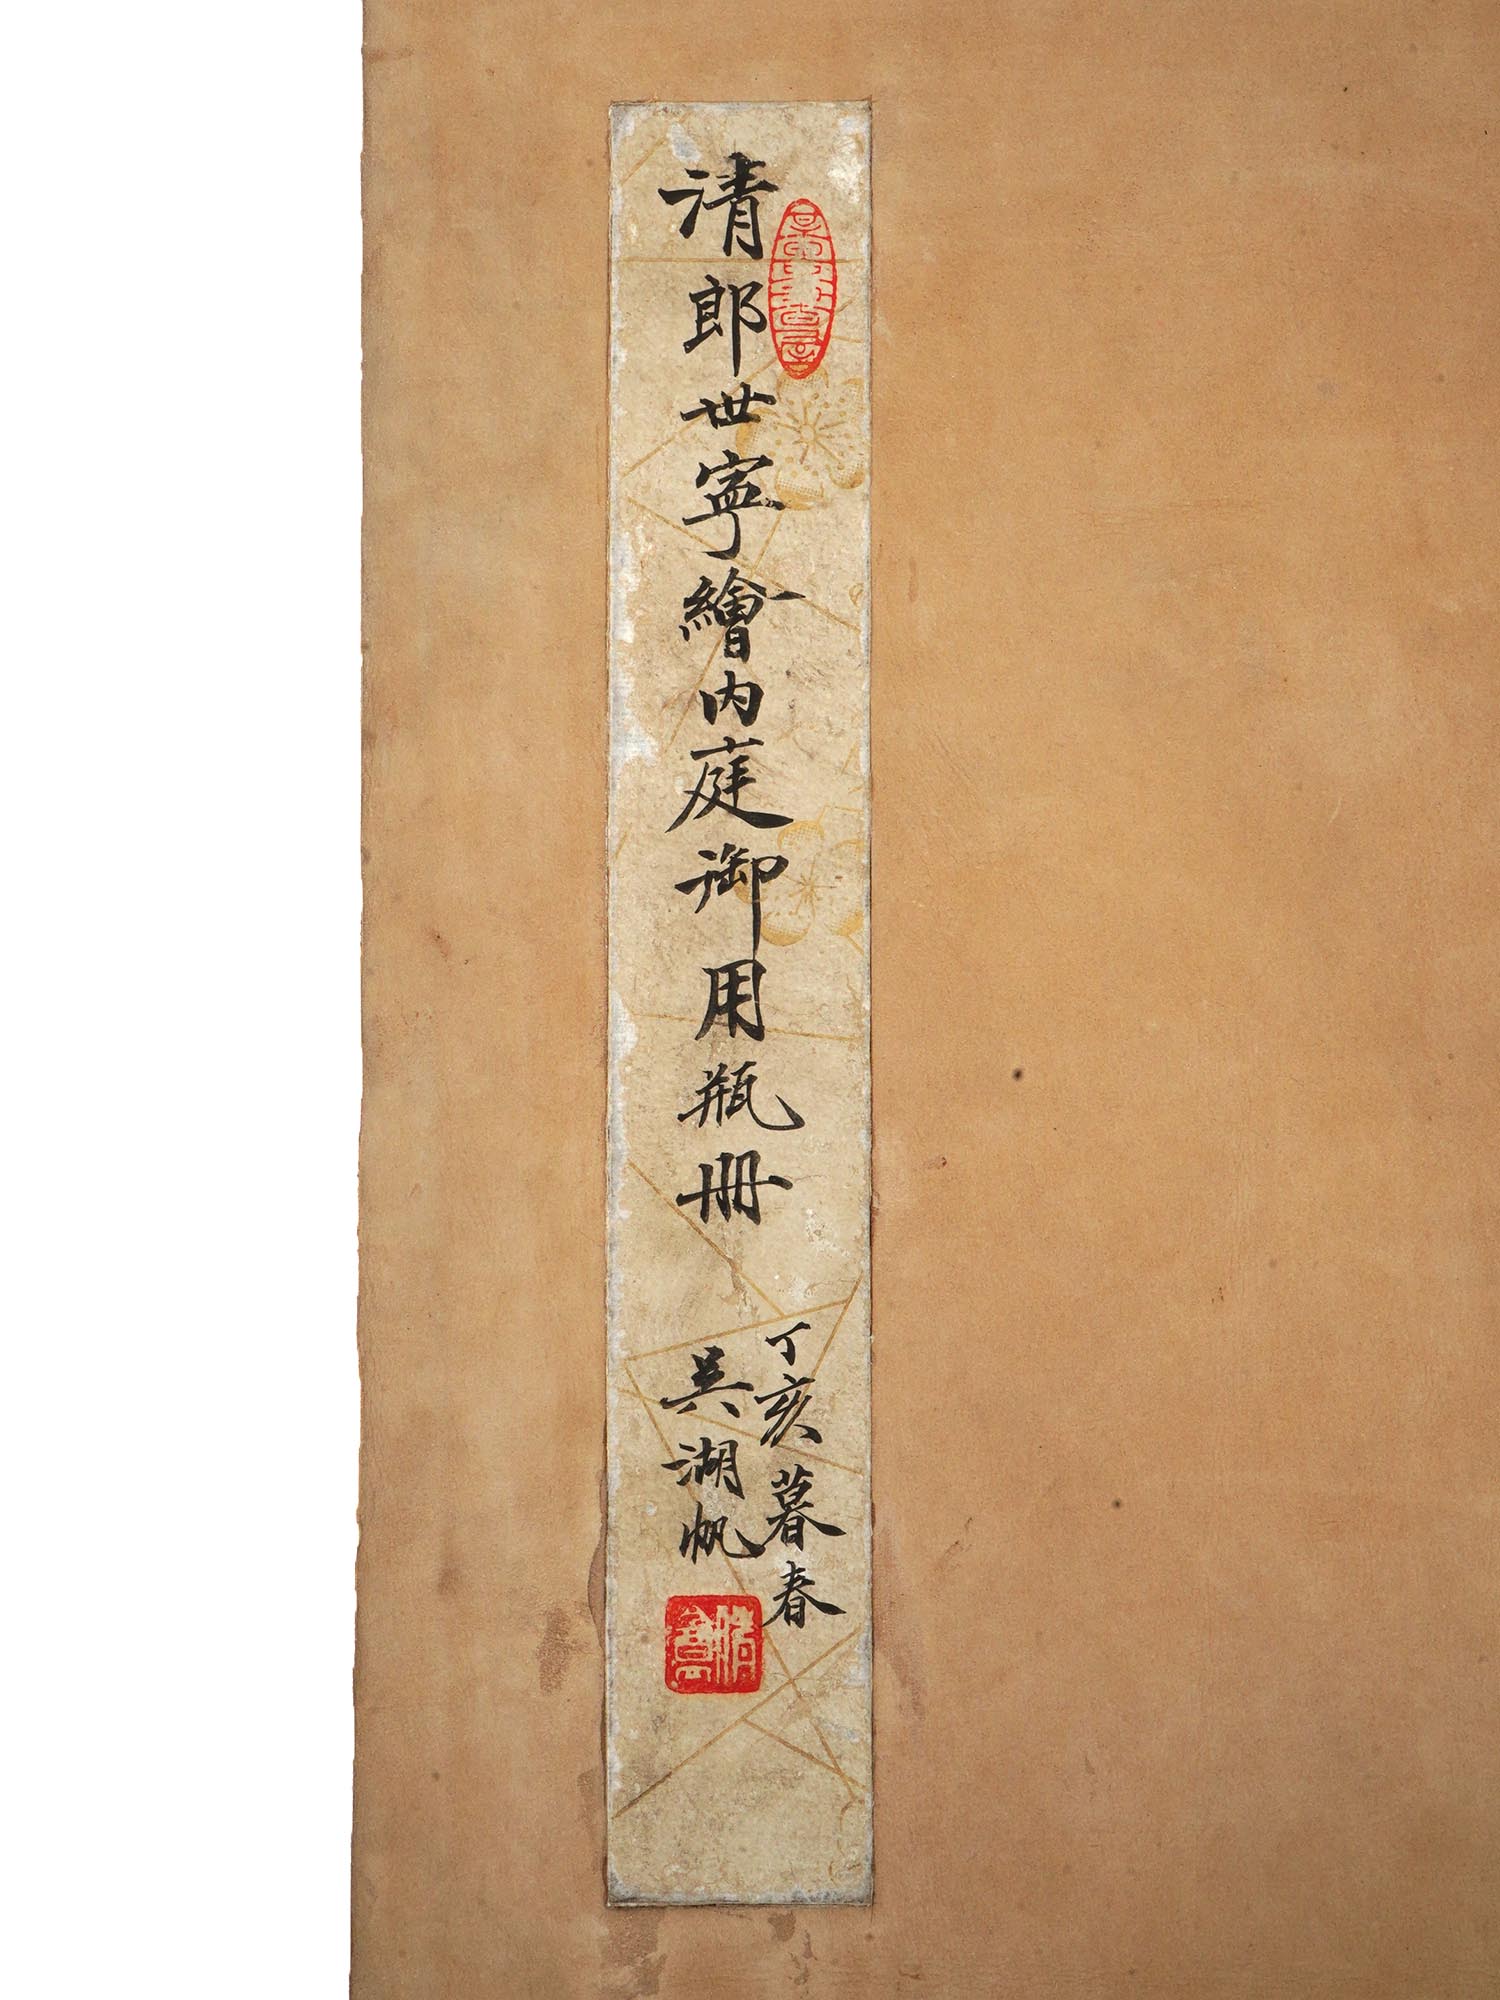 清郎世寧繪内庭御用瓶冊
丁亥暮春
吴湖帆